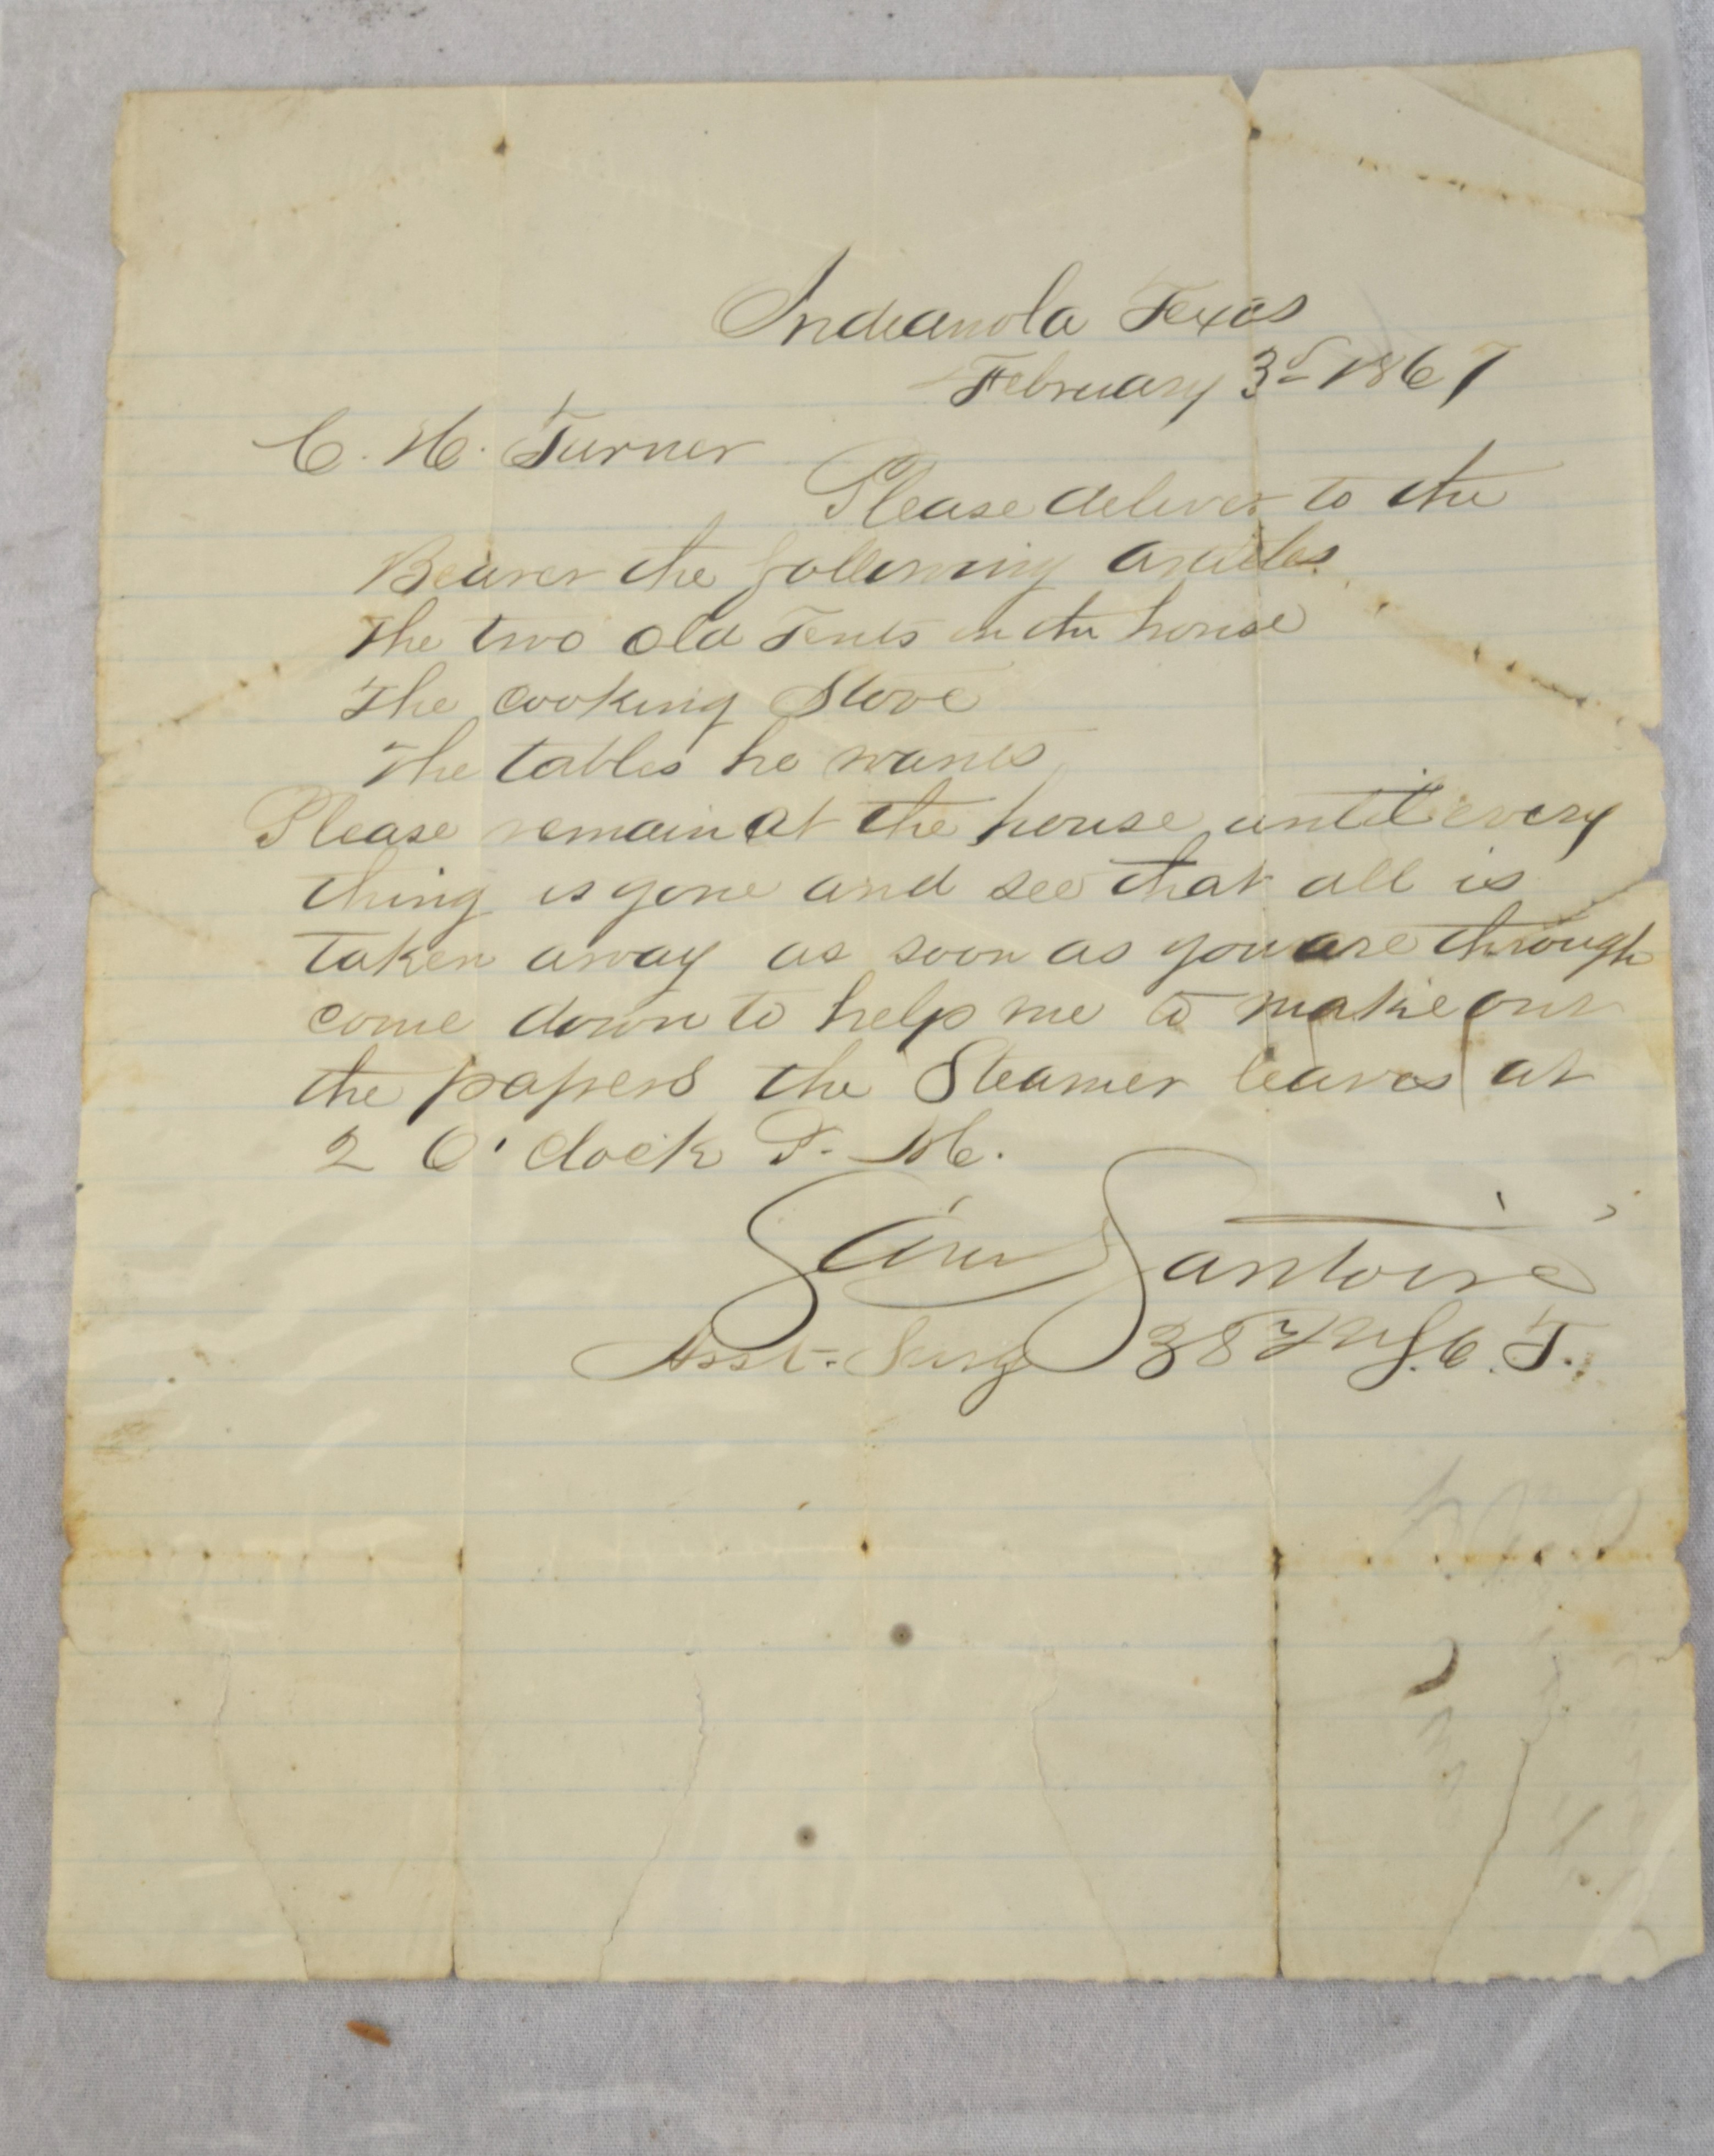 Indianola Texas
February 3d 1867
C. H. Turner
Please deliver to the
Bearer the following articles
The two old Tents in the house
The cooking Stove
The tables he wants
Please remain at the house until every
thing is gone and see that all is
taken away as soon as you are through
come down to help me to make out
the papers the Steamer leaves at
2 O'clock P. M.
Santoire
Asst. Surg 38th U.S.C.T.